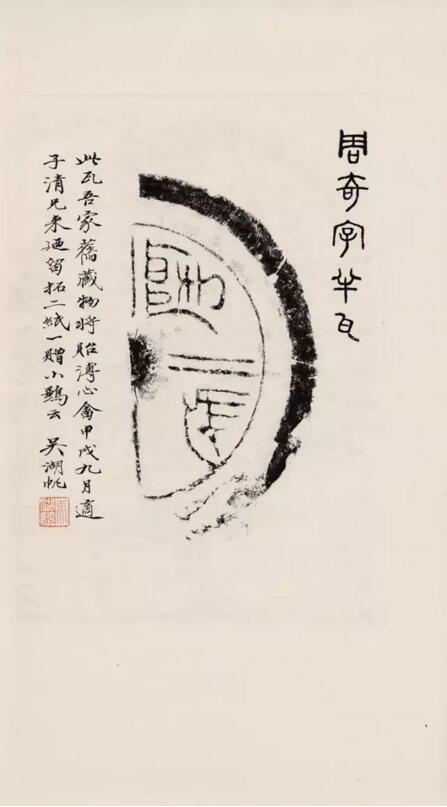 周奇字半瓦
此瓦吾家舊藏物將貽溥心畬甲戌九月適
子清兄來迺留拓二紙一贈小鶼云 吴湖帆